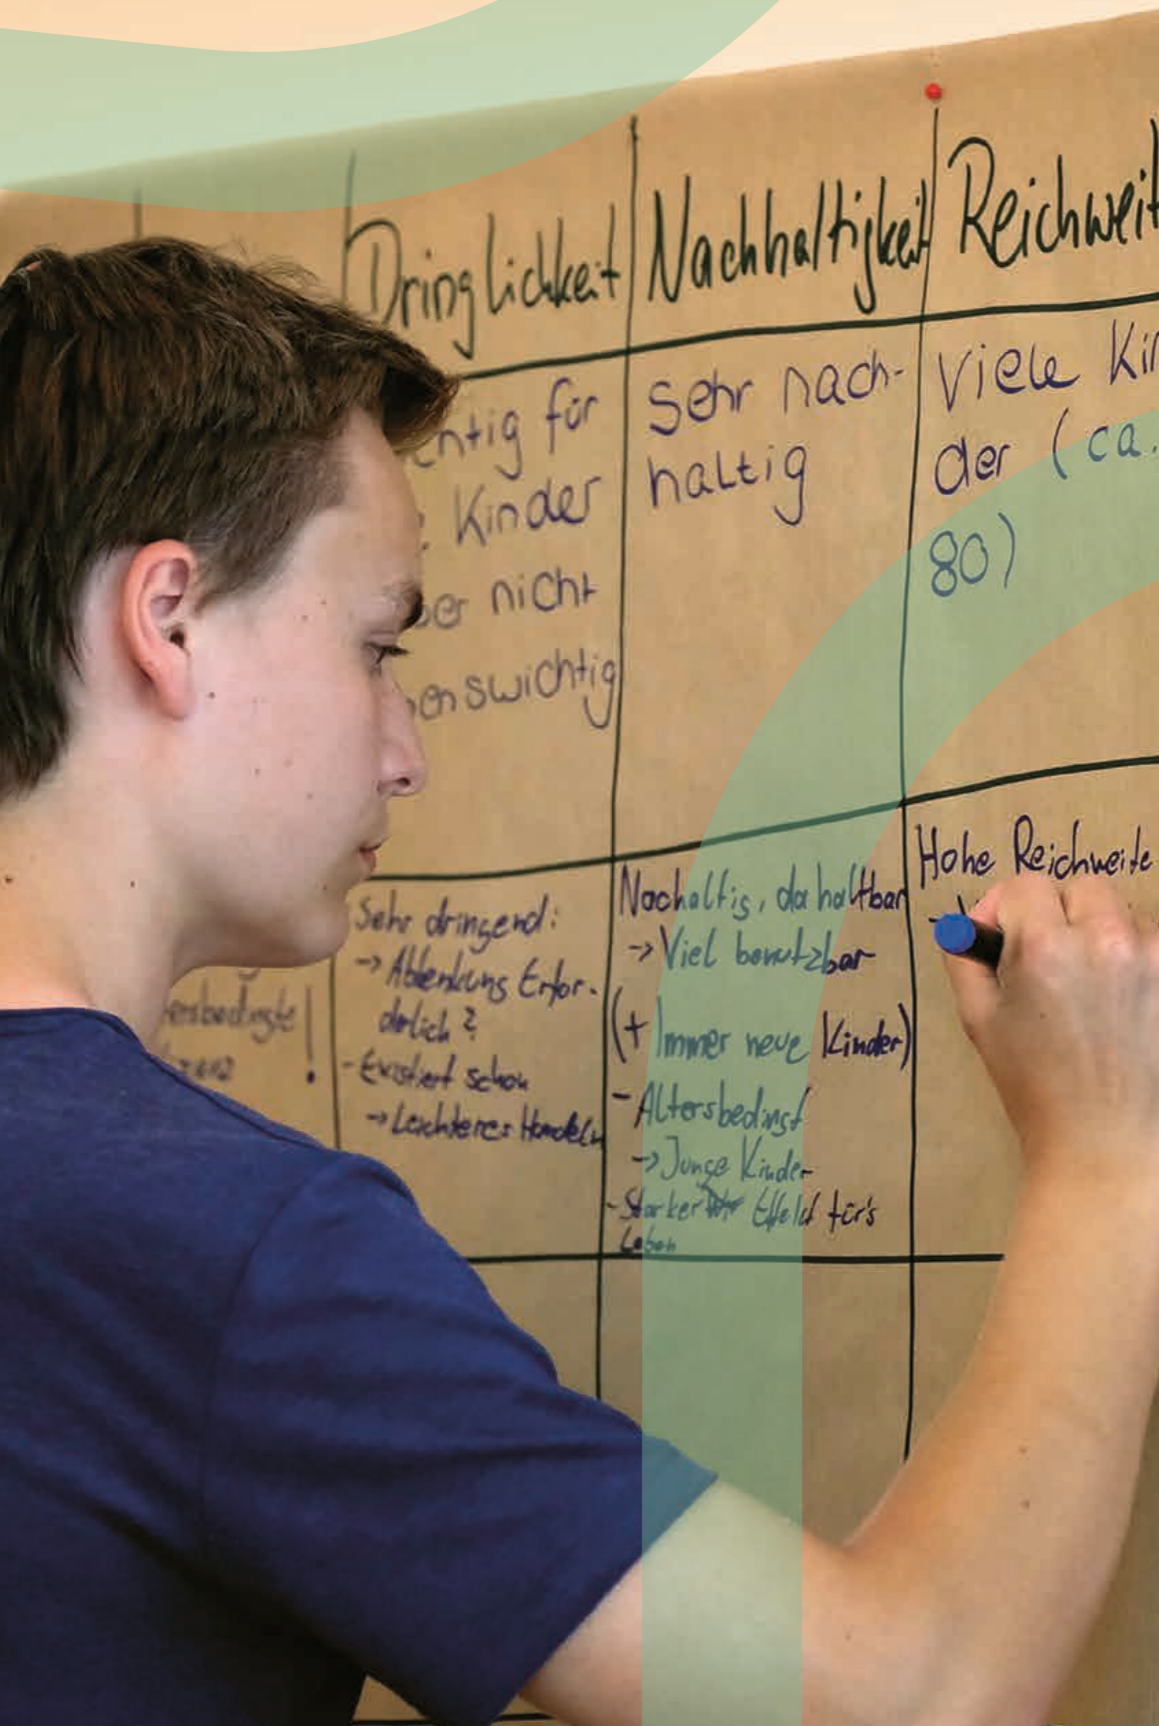 Dringlichkeit
Nachhaltigkeit
Reichweit
für
Kinder
nicht
enswichtig
Sehr nach-
haltig
Viele Kin
der (ca.
80)
Sehr dringend:
→ Ablenkung Erfor-
derlich?
- Existiert schon
→ Leichteres Handeln
Nachaltig, da haltbar
→ Viel benutzbar
(+ Immer neue Kinder)
- Altersbedingt
→ Junge Kinder
- Starker Effekt für's
Leben
Hohe Reichweite
ersbedingte !